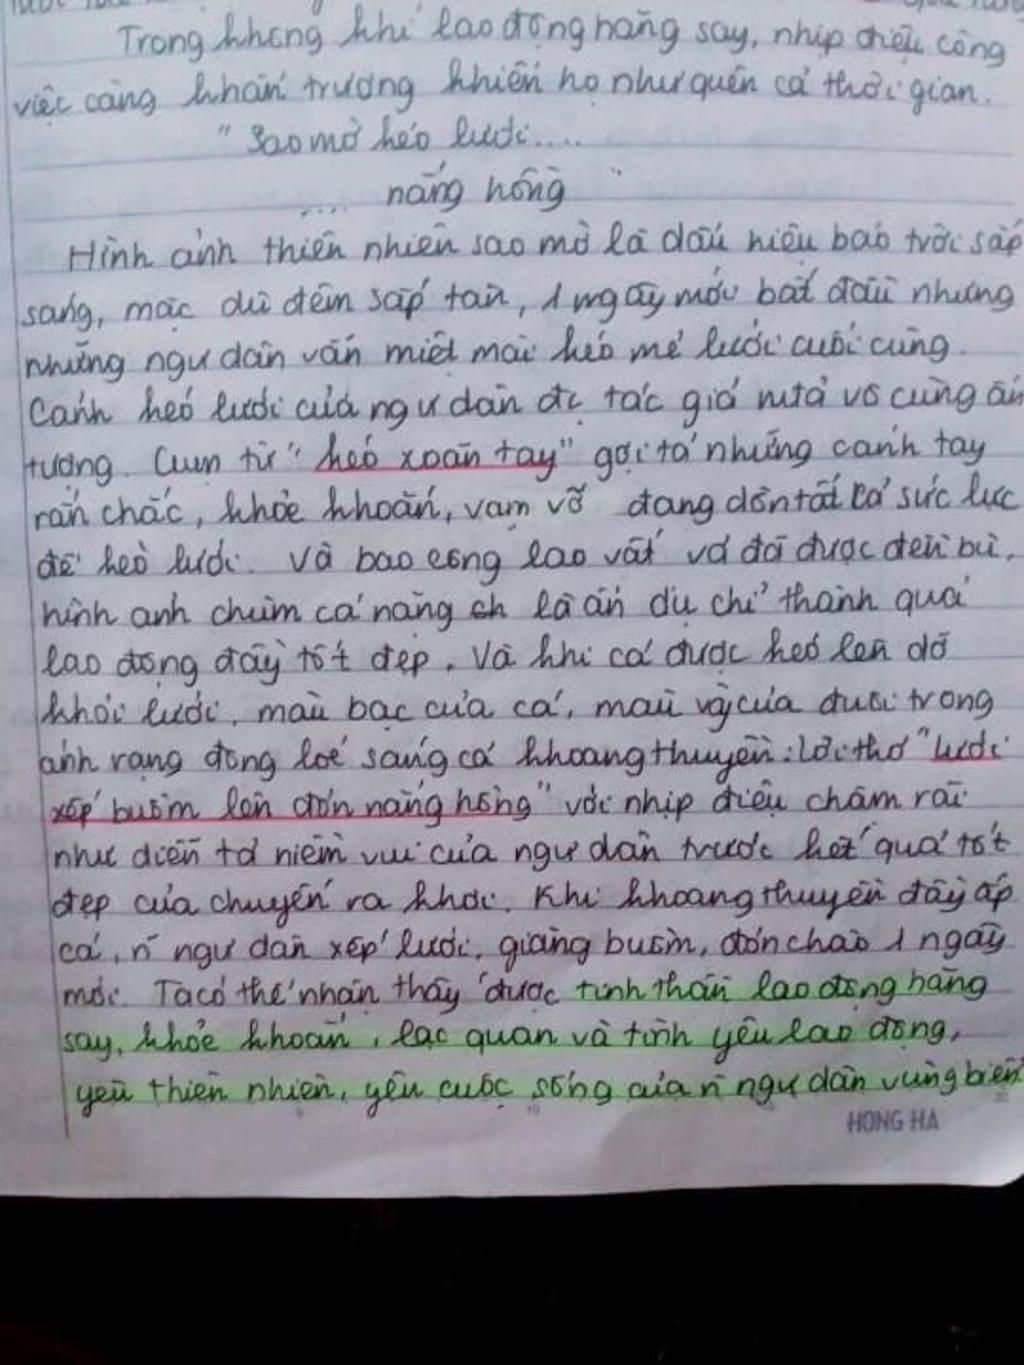 Trong không khí lao động hăng say, nhịp điệu công
việc càng khẩn trương khiến họ như quên cả thời gian.
"Sao mờ kéo lưới....
.... nắng hồng"
Hình ảnh thiên nhiên sao mờ là dấu hiệu báo trời sắp
sáng, mặc dù đêm sắp tàn, 1 ngày mới bắt đầu nhưng
những ngư dân vẫn miệt mài kéo mẻ lưới cuối cùng.
Cảnh kéo lưới của ngư dân đc tác giả mtả vô cùng ấn
tượng. Cụm từ "kéo xoăn tay" gợi tả những cánh tay
rắn chắc, khỏe khoắn, vạm vỡ đang dồn tất cả sức lực
để kéo lưới. Và bao công lao vất vả đã được đền bù,
hình ảnh chùm cá nặng là ẩn dụ chỉ thành quả
lao động đầy tốt đẹp. Và khi cá được kéo lên dỡ
khỏi lưới, màu bạc của cá, màu của đuôi trong
ánh rạng đông loé sáng cả khoang thuyền: Lời thơ "lưới
xếp buồm lên đón nắng hồng" với nhịp điệu chậm rãi
như diễn tả niềm vui của ngư dân trước kết quả tốt
đẹp của chuyến ra khơi. Khi khoang thuyền đầy ắp
cá, n~ ngư dân xếp lưới, giăng buồm, đón chào 1 ngày
mới. Ta có thể nhận thấy được tinh thần lao động hăng
say, khỏe khoắn, lạc quan và tình yêu lao động,
yêu thiên nhiên, yêu cuộc sống của n~ ngư dân vùng biển.
HONG HA